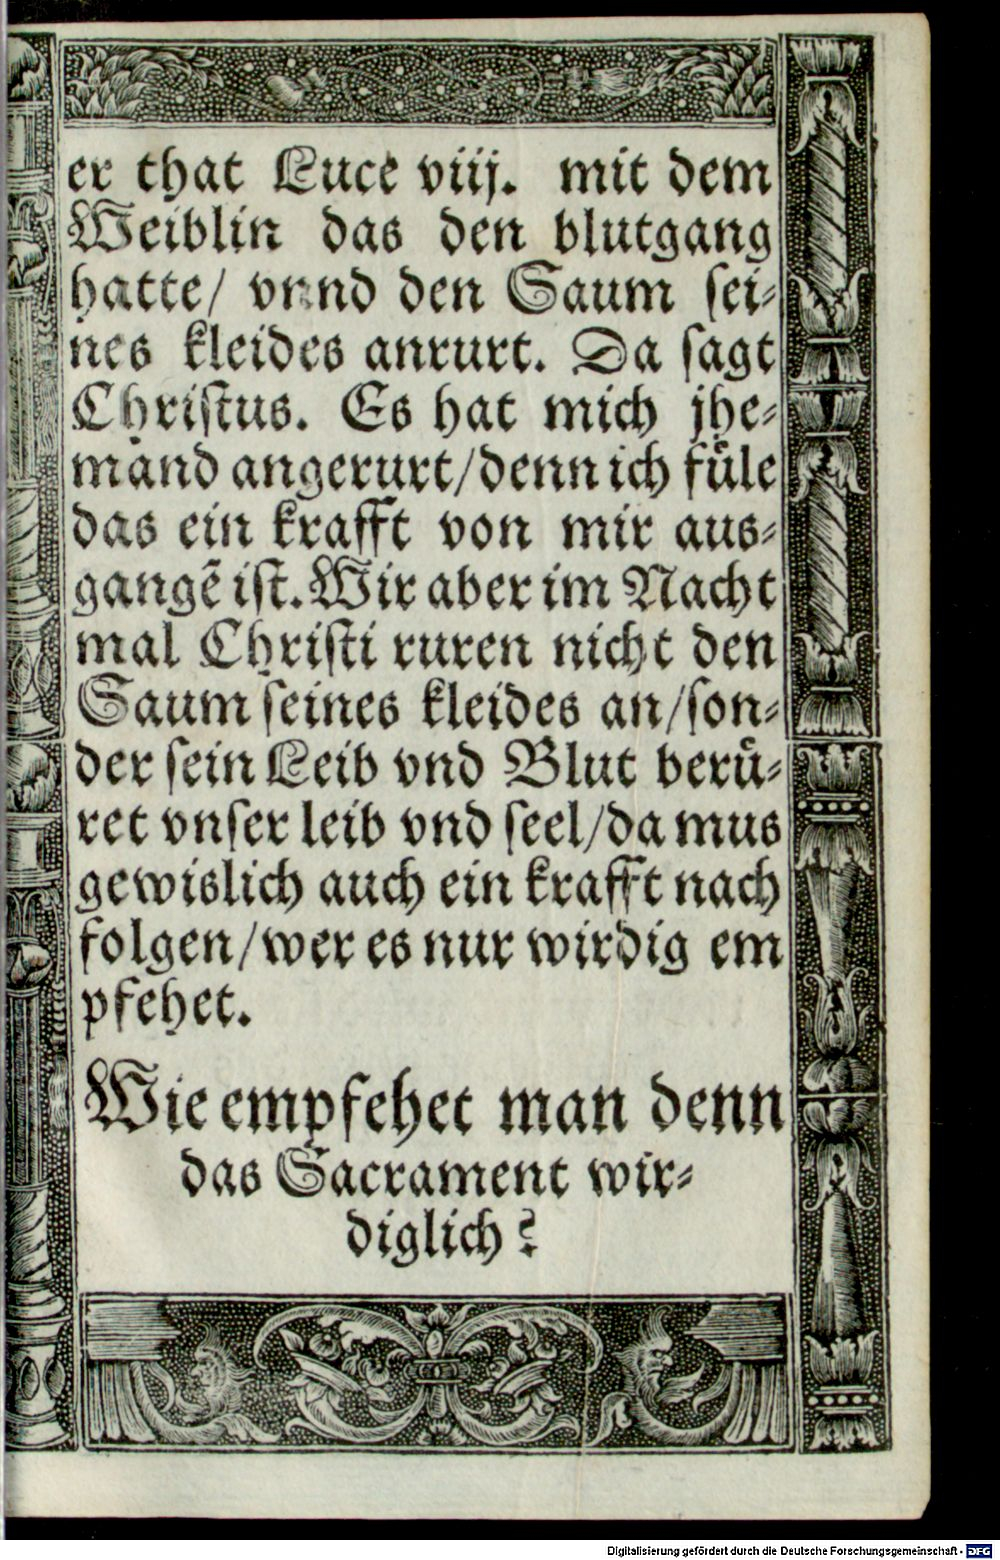 er that Luce viij. mit dem
Weiblin das den blutgang
hatte/ vnnd den Saum sei⸗
nes kleides anrurt. Da sagt
Christus. Es hat mich jhe⸗
mand angerurt/denn ich fuͤle
das ein krafft von mir aus⸗
gangē ist. Wir aber im Nacht
mal Christi ruren nicht den
Saum seines kleides an/son⸗
der sein Leib vnd Blut beruͤ⸗
ret vnser leib vnd seel/da mus
gewislich auch ein krafft nach
folgen/wer es nur wirdig em
pfehet.
Wie empfehet man denn
das Sacrament wir⸗
diglich?
Digitalisierung gefördert durch die Deutsche Forschungsgemeinschaft - DFG